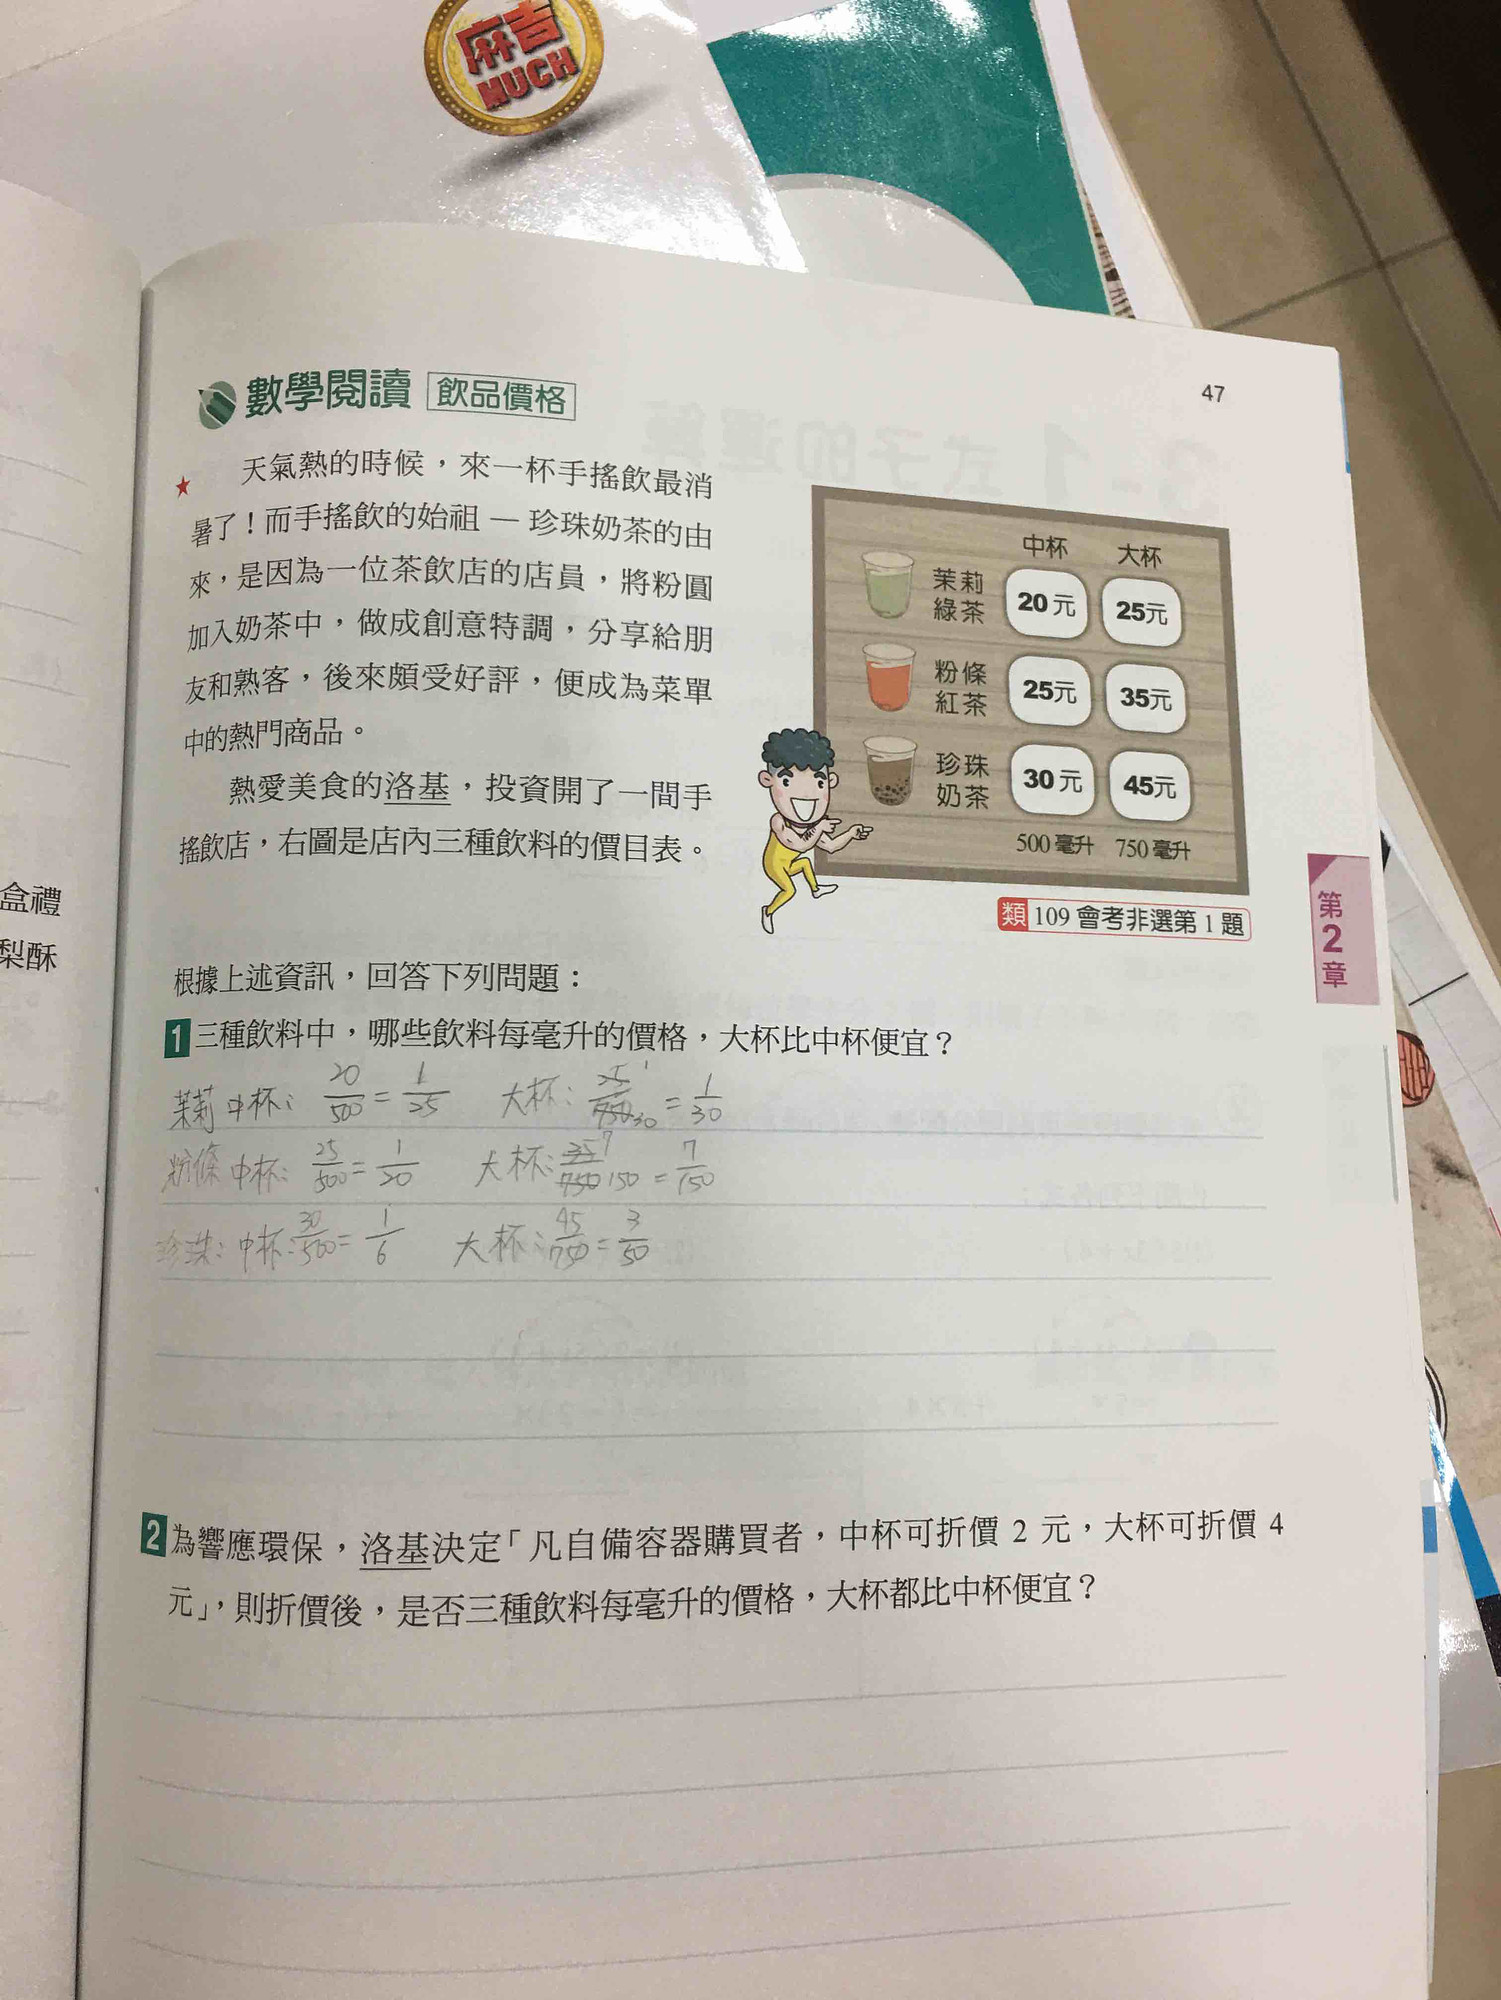 麻吉
MUCH
47
數學閱讀 飲品價格
天氣熱的時候，來一杯手搖飲最消
暑了！而手搖飲的始祖—珍珠奶茶的由
來，是因為一位茶飲店的店員，將粉圓
加入奶茶中，做成創意特調，分享給朋
友和熟客，後來頗受好評，便成為菜單
中的熱門商品。
熱愛美食的洛基，投資開了一間手
搖飲店，右圖是店內三種飲料的價目表。
中杯 大杯
茉莉綠茶 20元 25元
粉條紅茶 25元 35元
珍珠奶茶 30元 45元
500毫升 750毫升
類 109 會考非選第 1 題
第2章
盒禮
梨酥
根據上述資訊，回答下列問題：
1 三種飲料中，哪些飲料每毫升的價格，大杯比中杯便宜？
茉莉中杯： 20/500 = 1/25 大杯： 25/750 1 30 = 1/30
粉條中杯： 25/500 = 1/20 大杯： 35/750 7 150 = 7/150
珍珠：中杯： 30/500 = 1/6 大杯： 45/750 = 3/50
2 為響應環保，洛基決定「凡自備容器購買者，中杯可折價 2 元，大杯可折價 4
元」，則折價後，是否三種飲料每毫升的價格，大杯都比中杯便宜？